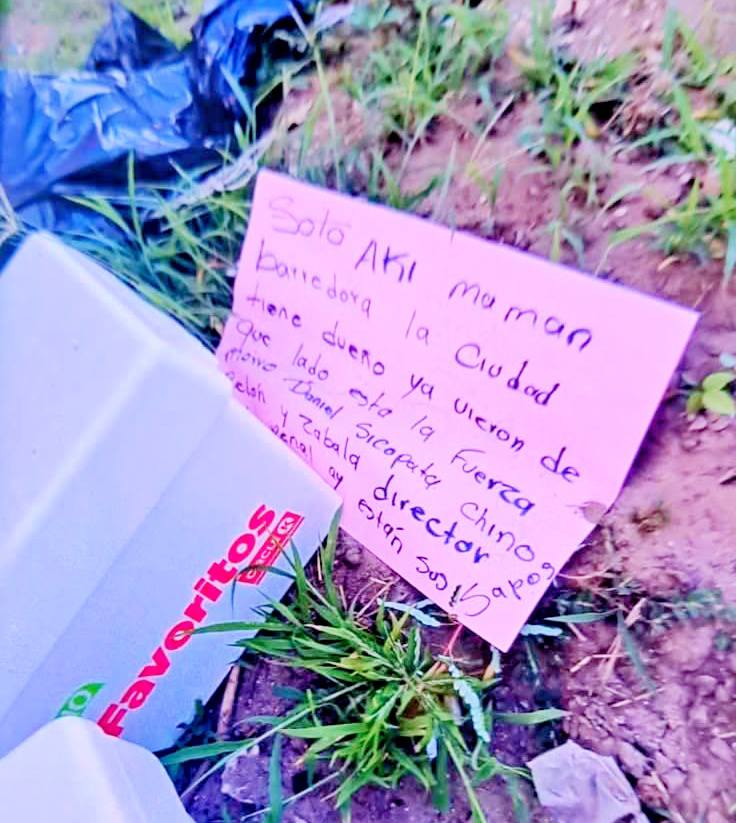 Solo AKI maman
barredora la Ciudad
tiene dueño ya vieron de
que lado esta la Fuerza
Daniel Sicopata chino
y Zabala director
penal ay están sus Sapos
Favoritos